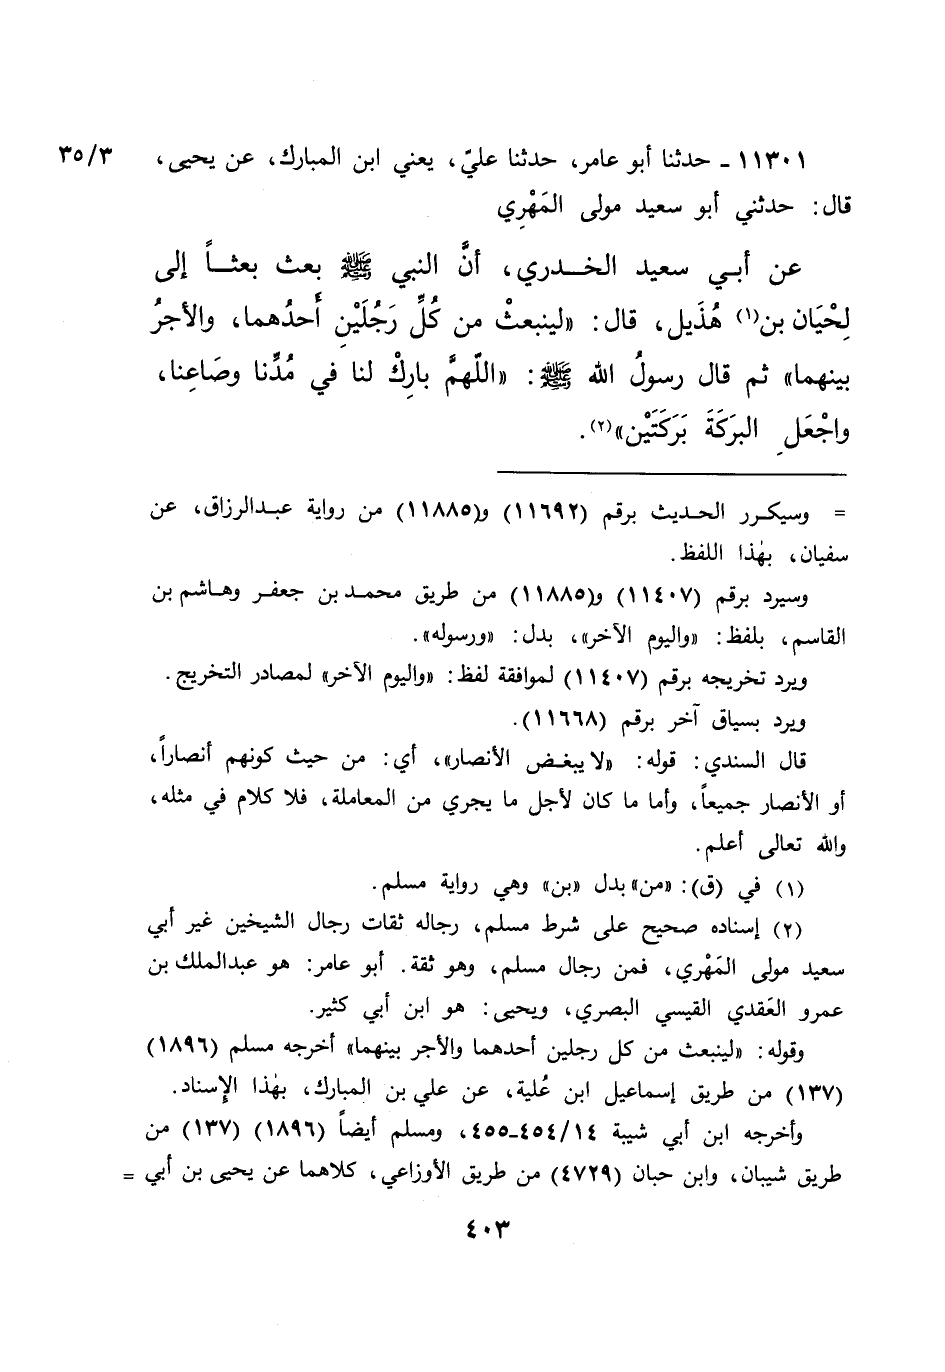 ١١٣٠١ ـ حدثنا أبو عامر، حدثنا عليّ، يعني ابن المبارك، عن يحيى، ٣٥/٣
قال: حدثني أبو سعيد مولى المَهْرِي
عن أبـي سعيد الخـدري، أنَّ النبي ﷺ بعث بعثـاً إلى
لِحْيَان بن(١) هُذَيل، قال: «لينبعثْ من كُلِّ رَجُلَيْنِ أَحدُهما، والأجرُ
بينهما» ثم قال رسولُ الله ﷺ: «اللّهمَّ بارِكْ لنا في مُدِّنا وصَاعِنا،
واجْعَلِ البرَكَةَ بَرَكَتَيْن»(٢).
= وسيكـرر الحـديث برقم (١١٦٩٢) و(١١٨٨٥) من رواية عبـدالرزاق، عن
سفيان، بهٰذا اللفظ.
وسيرد برقم (١١٤٠٧) و(١١٨٨٥) من طريق محمـد بن جعفـر وهـاشم بن
القاسم، بلفظ: «واليوم الآخر»، بدل: «ورسوله».
ويرد تخريجه برقم (١١٤٠٧) لموافقة لفظ: «واليوم الآخر» لمصادر التخريج.
ويرد بسياق آخر برقم (١١٦٦٨).
قال السندي: قوله: «لا يبغـض الأنصار»، أي: من حيث كونهم أنصاراً،
أو الأنصار جميعاً، وأما ما كان لأجل ما يجري من المعاملة، فلا كلام في مثله،
والله تعالى أعلم.
(١) في (ق): «من» بدل «بن» وهي رواية مسلم.
(٢) إسناده صحيح على شرط مسلم، رجاله ثقات رجال الشيخين غير أبي
سعيد مولى المَهْري، فمن رجال مسلم، وهو ثقة. أبو عامر: هو عبدالملك بن
عمرو العَقدي القيسي البصري، ويحيى: هو ابن أبي كثير.
وقوله: «لينبعث من كل رجلين أحدهما والأجر بينهما» أخرجه مسلم (١٨٩٦)
(١٣٧) من طريق إسماعيل ابن عُلية، عن علي بن المبارك، بهٰذا الإسناد.
وأخرجه ابن أبي شيبة ١٤/٤٥٤-٤٥٥، ومسلم أيضاً (١٨٩٦) (١٣٧) من
طريق شيبان، وابن حبان (٤٧٢٩) من طريق الأوزاعي، كلاهما عن يحيى بن أبي =
٤٠٣